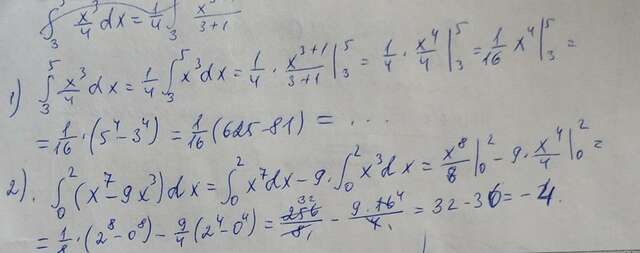 ∫₃⁵ x³/4 dx = 1/4 ∫₃ x³/(3+1)
1) ∫₃⁵ x³/4 dx = 1/4 ∫₃⁵ x³dx = 1/4 · x³⁺¹/(3+1) |₃⁵ = 1/4 · x⁴/4 |₃⁵ = 1/16 x⁴ |₃⁵ =
= 1/16 · (5⁴ - 3⁴) = 1/16 (625 - 81) = ...
2). ∫₀² (x⁷ - 9x³) dx = ∫₀² x⁷dx - 9 · ∫₀² x³dx = x⁸/8 |₀² - 9 · x⁴/4 |₀² =
= 1/8 · (2⁸ - 0⁸) - 9/4 (2⁴ - 0⁴) = 256³²/8₁ - 9·16⁴/4₁ = 32 - 36 = -4.